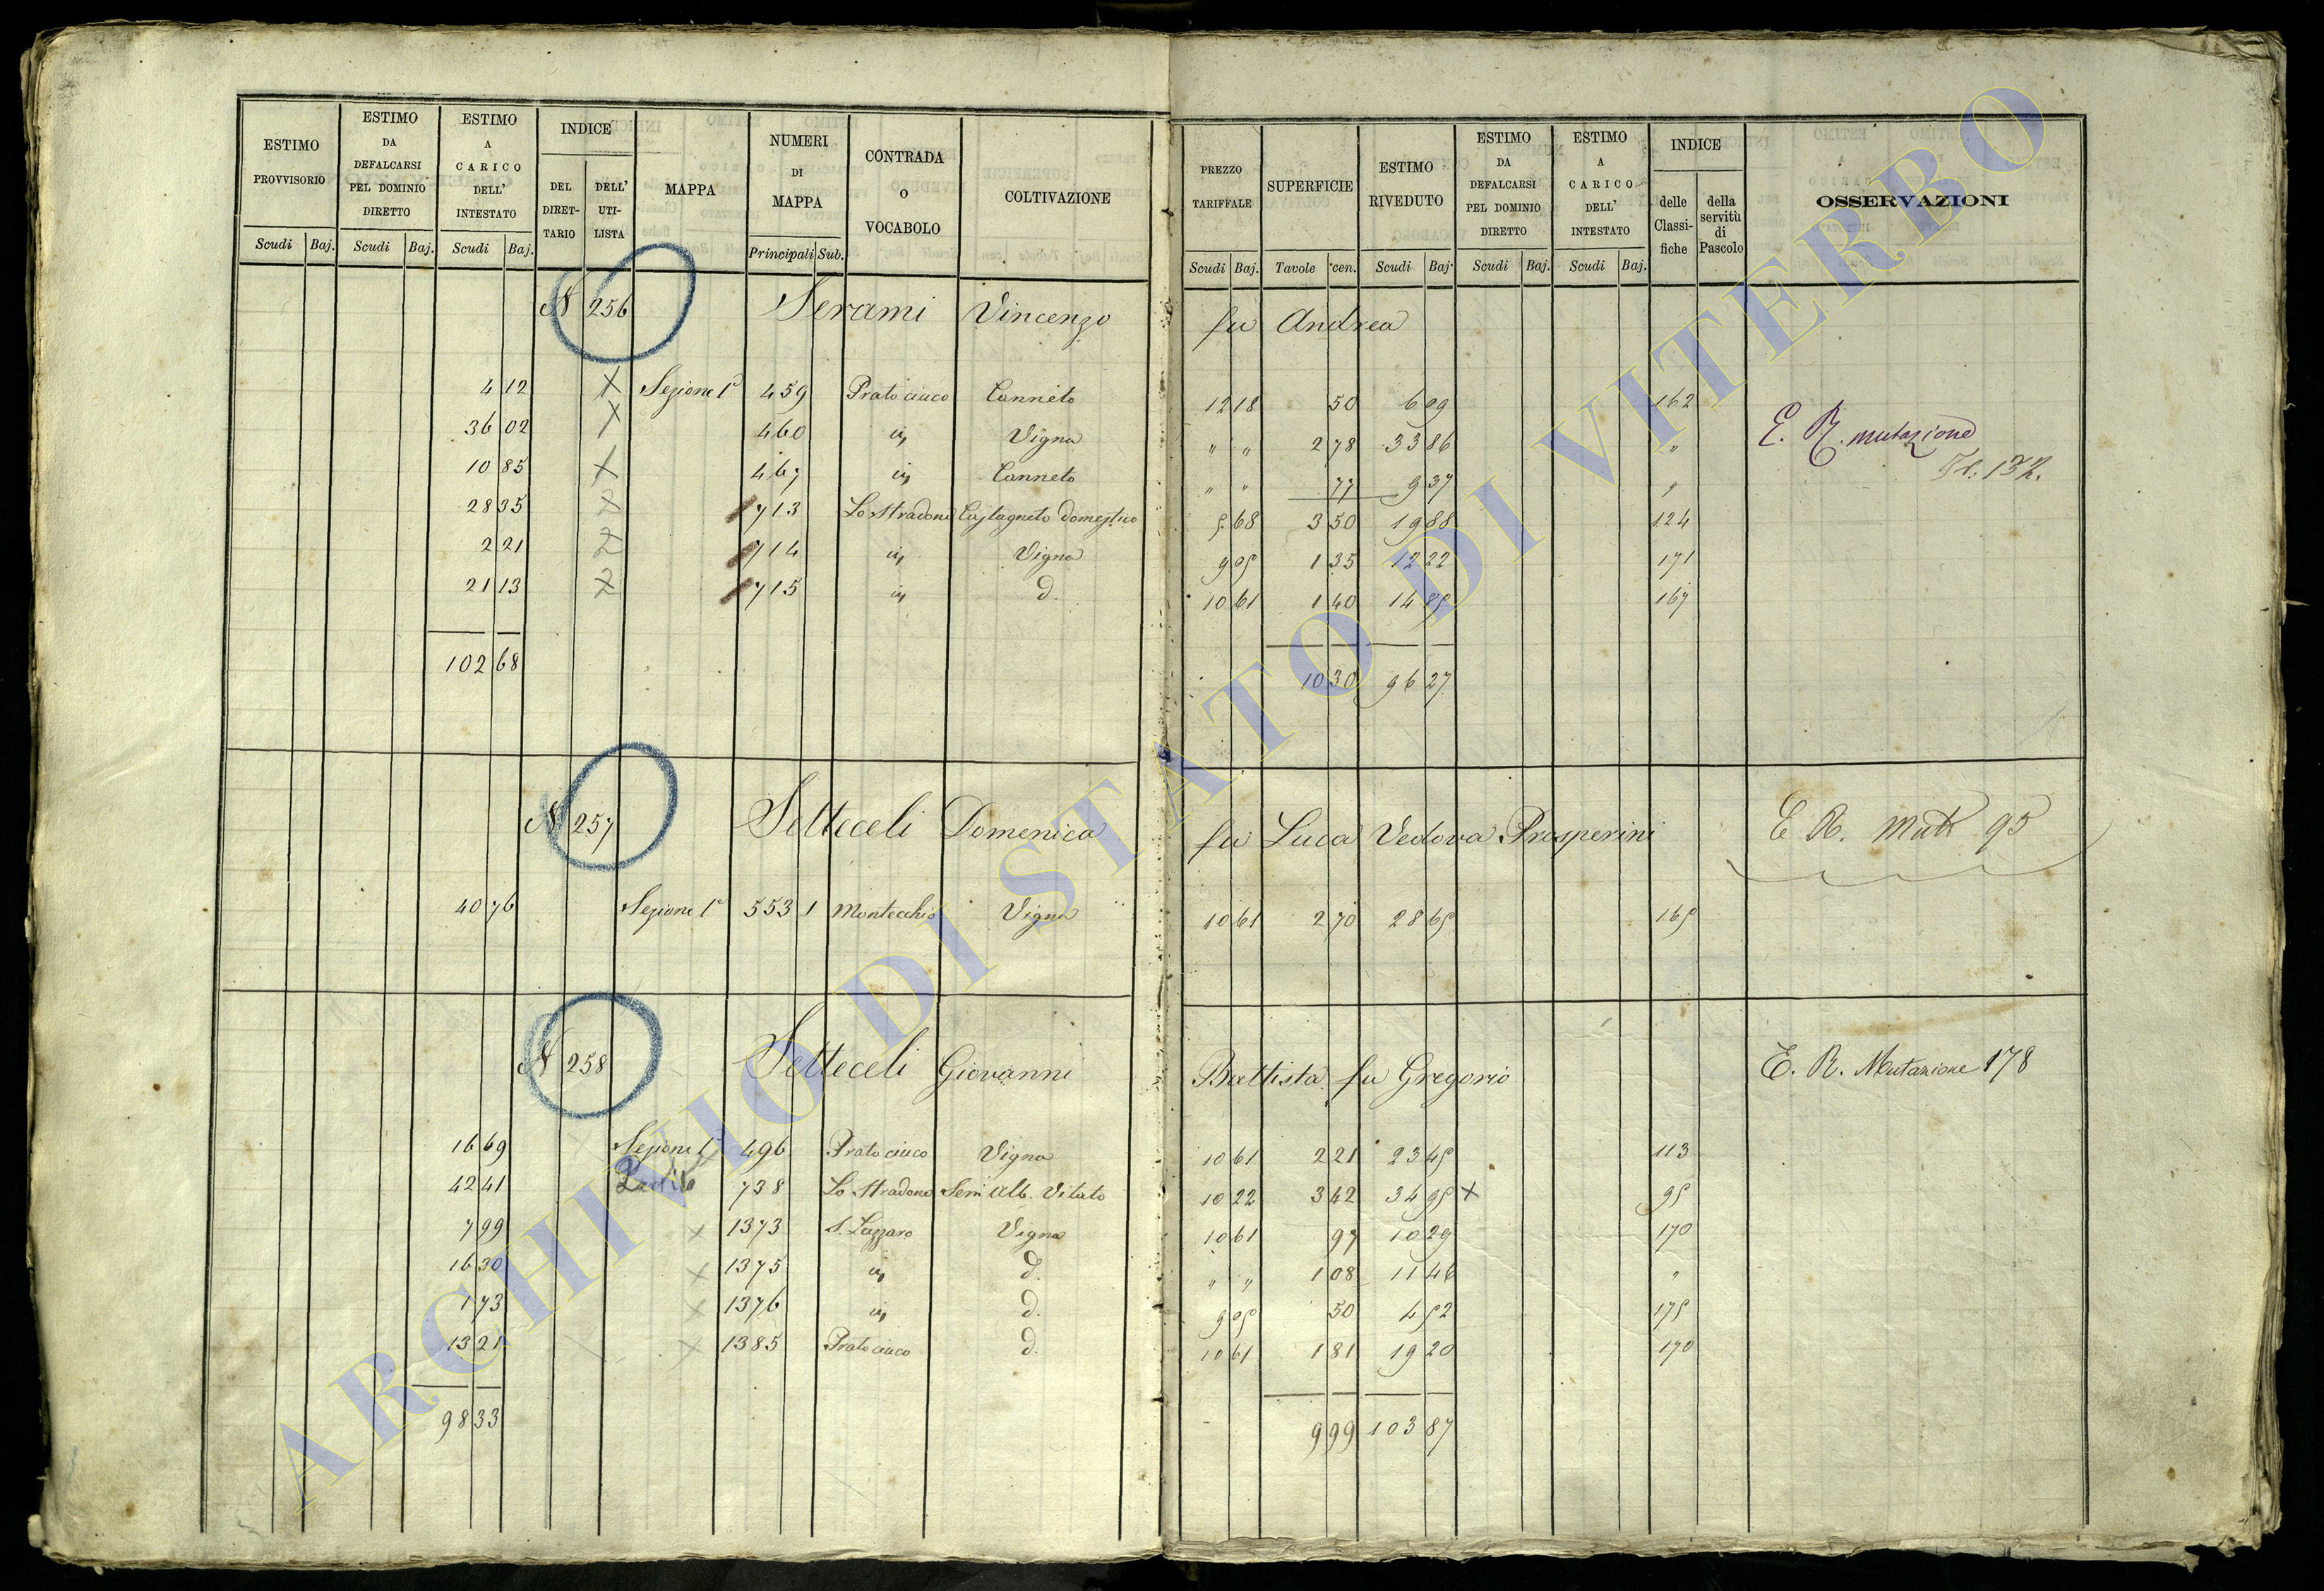 ESTIMO PROVVISORIO | ESTIMO DA DEFALCARSI PEL DOMINIO DIRETTO | ESTIMO A CARICO DELL' INTESTATO | INDICE | MAPPA | NUMERI DI MAPPA | CONTRADA O VOCABOLO | COLTIVAZIONE | PREZZO TARIFFALE | SUPERFICIE | ESTIMO RIVEDUTO | ESTIMO DA DEFALCARSI PEL DOMINIO DIRETTO | ESTIMO A CARICO DELL' INTESTATO | INDICE | OSSERVAZIONI
DEL DIRETTARIO | DELL' UTILISTA | delle Classifiche | della servitù di Pascolo
Scudi Baj. | Scudi Baj. | Scudi Baj. | Principali Sub. | Scudi Baj. | Tavole cen. | Scudi Baj. | Scudi Baj. | Scudi Baj.
N 256 Serami Vincenzo fu Andrea
4 12 X Sezione 1ª 459 Prato ciuco Canneto 12 18 50 6 09 162
36 02 X 460 " Vigna " " 2 78 33 86 " E. R. mutazione
10 85 X 467 " Canneto " " 77 9 37 " 132.
28 35 713 Lo Stradone Castagneto domestico 5 68 3 50 19 88 124
2 21 714 " Vigna 9 05 1 35 12 22 171
21 13 715 " d. 10 61 1 40 14 85 167
102 68 10 30 96 27
N 257 Setteceli Domenica fu Luca Vedova Prosperini E R. Mutt 95
40 76 Sezione 1ª 553 1 Montecchio Vigna 10 61 2 70 28 65 165
N 258 Setteceli Giovanni Battista fu Gregorio E. R. Mutazione 178
16 69 Sezione 1ª 496 Prato ciuco Vigna 10 61 2 21 23 45 113
42 41 738 Lo Stradone Sem Alb. Vitato 10 22 3 42 34 95 X 95
7 99 X 1373 S. Lazzaro Vigna 10 61 97 10 29 170
16 30 X 1375 " d. " " 1 08 11 46 "
1 73 X 1376 " d. 9 05 50 4 52 175
13 21 X 1385 Prato ciuco d. 10 61 1 81 19 20 170
98 33 9 99 103 87
ARCHIVIO DI STATO DI VITERBO